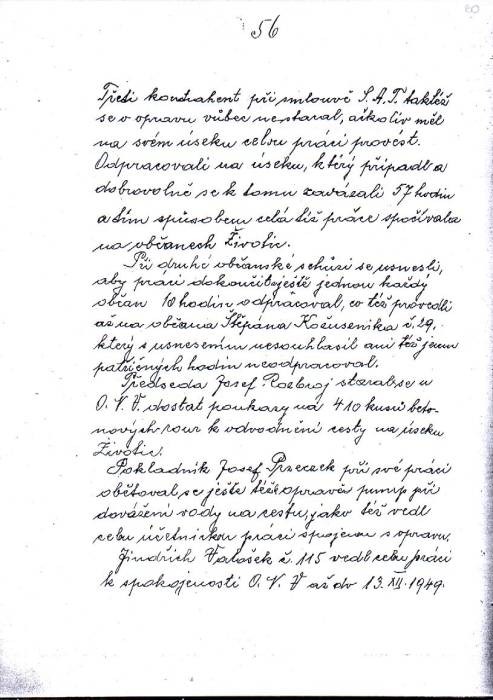 80
56
Třetí kontrahent při smlouvě S.A.T. taktéž
se o opravu vůbec nestaral, ačkoliv měl
na svém úseku celou práci provést.
Odpracovali na úseku, který připadl a
dobrovolně se k tomu zavázali 57 hodin
a tím způsobem celá též práce spočívala
na občanech Životic.
Při druhé občanské schůzi se usnesli,
aby práci dokončit ještě jednou každý
občan 10 hodin odpracoval, co též provedli
až na občana Štěpána Kožusznika č. 29,
který s usnesením nesouhlasil ani též jemu
patřičných hodin neodpracoval.
Předseda Josef Rozbroj staral se u
O.N.V. dostat poukazy na 410 kusů beto-
nových rour k odvodnění cesty na úseku
Životic.
Pokladník Josef Przeczek při své práci
obětoval se ještě též opravě pump při
dovážení vody na cestu, jako též vedl
celou účetnickou práci spojenou s opravou.
Jindřich Valošek č. 115 vedl celou práci
k spokojenosti O.N.V až do 13.XII.1949.